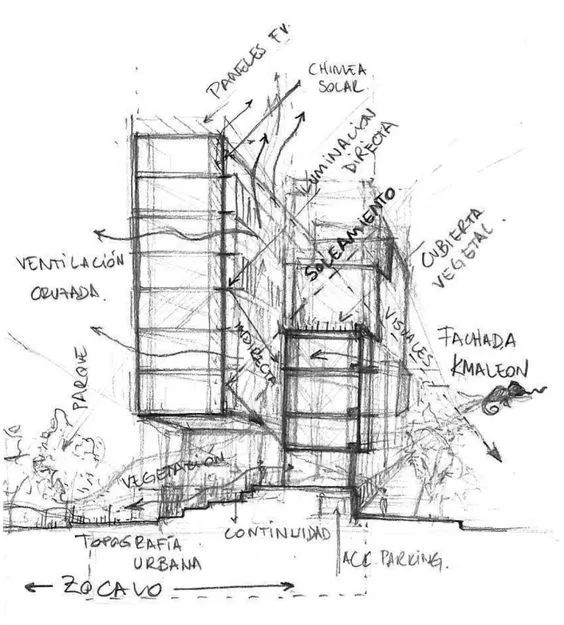 PANELES FV.
CHIMEA
SOLAR
ILUMINACION
DIRECTA
SOLEAMIENTO
CUBIERTA
VEGETAL.
VENTILACIÓN
CRUZADA.
INDIRECTA
VISUALES
FACHADA
KMALEON
PARQUE
VEGETACIÓN
TOPOGRAFÍA
URBANA
CONTINUIDAD
ACC PARKING.
ZOCALO